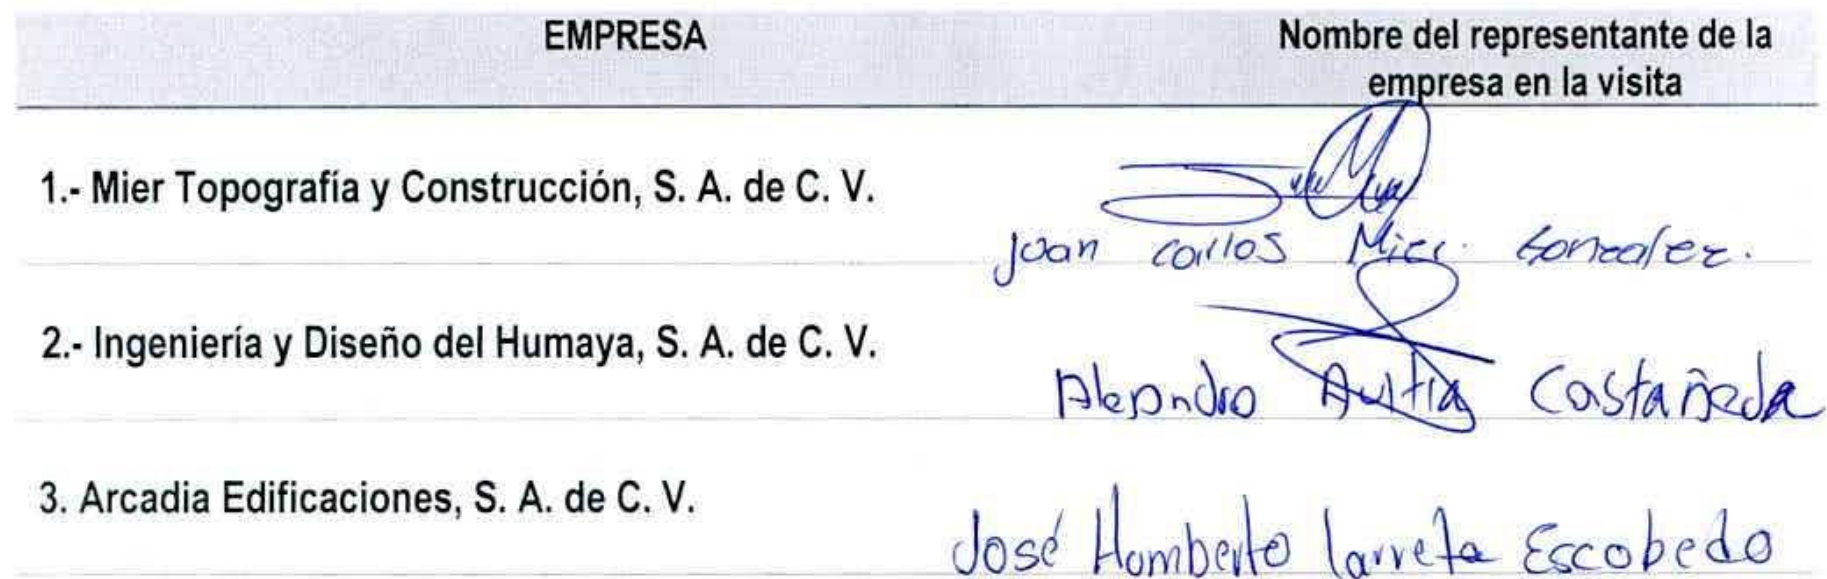 EMPRESA
Nombre del representante de la
empresa en la visita
1.- Mier Topografía y Construcción, S. A. de C. V.
Juan Carlos Mier Gonzalez.
2.- Ingeniería y Diseño del Humaya, S. A. de C. V.
Alejandro Castañeda
3. Arcadia Edificaciones, S. A. de C. V.
José Humberto Larreta Escobedo